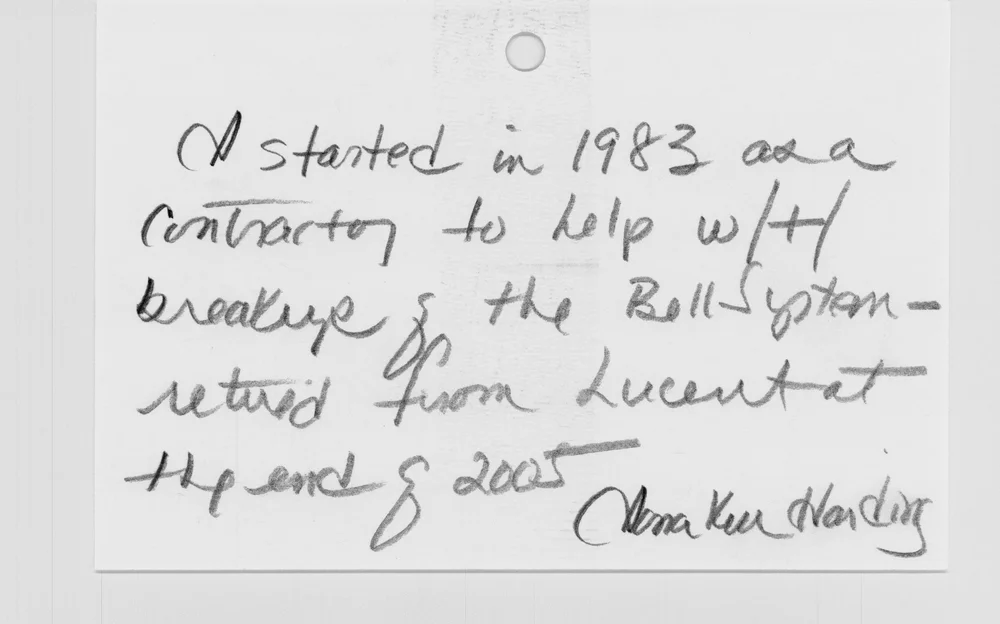 I started in 1983 as a
contractor to help w/t/
breakup of the Bell System –
retired from Lucent at
the end of 2005
Harding